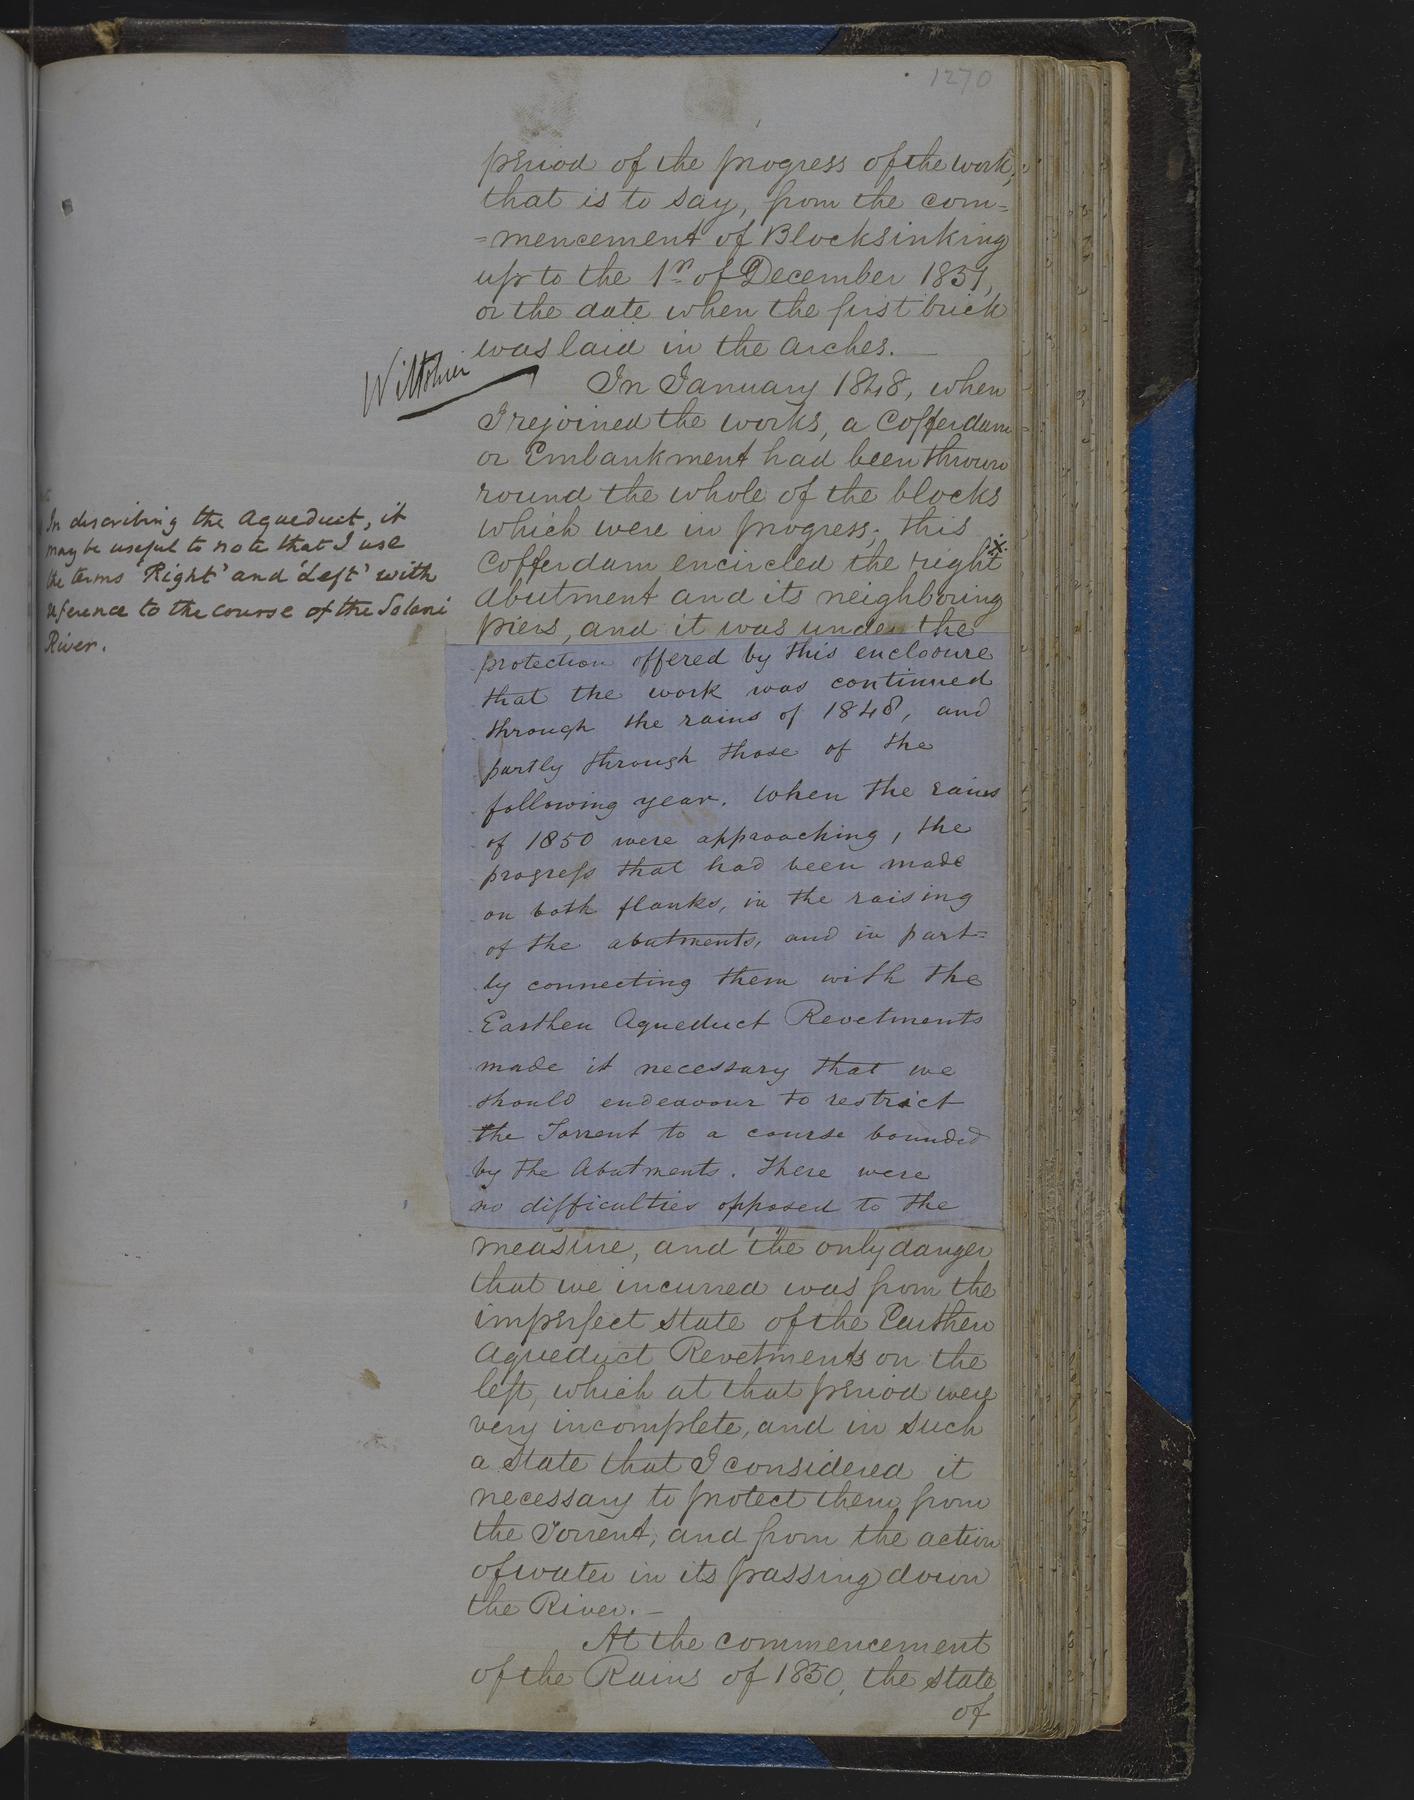 1270
period of the progress of the work,
that is to say, from the com=
=mencement of Blocksinking
up to the 1st of December 1851,
or the date when the first brick
was laid in the arches. —
Wiltshier
In January 1848, when
I rejoined the works, a Cofferdam
or Embankment had been thrown
round the whole of the blocks
which were in progress; this
Cofferdam encircled the right x
Abutment and its neighboring
piers, and it was under the
In describing the Aqueduct, it
may be useful to note that I use
the terms 'Right' and 'Left' with
reference to the course of the Solani
River.
protection offered by this enclosure
that the work was continued
through the rains of 1848, and
partly through those of the
following year. When the rains
of 1850 were approaching, the
progress that had been made
on both flanks, in the raising
of the abutments, and in part=
ly connecting them with the
Earthen Aqueduct Revetments
made it necessary that we
should endeavour to restrict
the Torrent to a course bounded
by the Abutments. There were
no difficulties opposed to the
measure, and the only danger
that we incurred was from the
imperfect state of the Earthen
Aqueduct Revetments on the
left, which at that period were
very incomplete, and in such
a state that I considered it
necessary to protect them from
the Torrent, and from the action
of water in its passing down
the River. —
At the commencement
of the Rains of 1850, the state
of